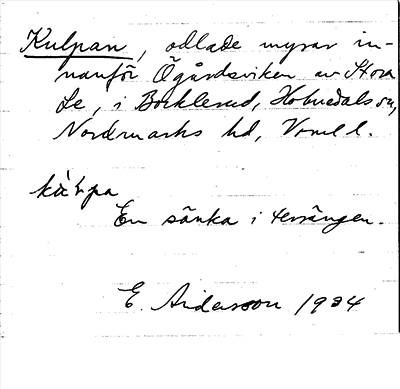 Kulpan, odlade myrar in-
nanför Ögårdsviken av Stora
Le, i Bocklerud, Holmedals sn,
Nordmarks hd, Vrml l.
En sänka i terrängen.
E. Andersson 1924